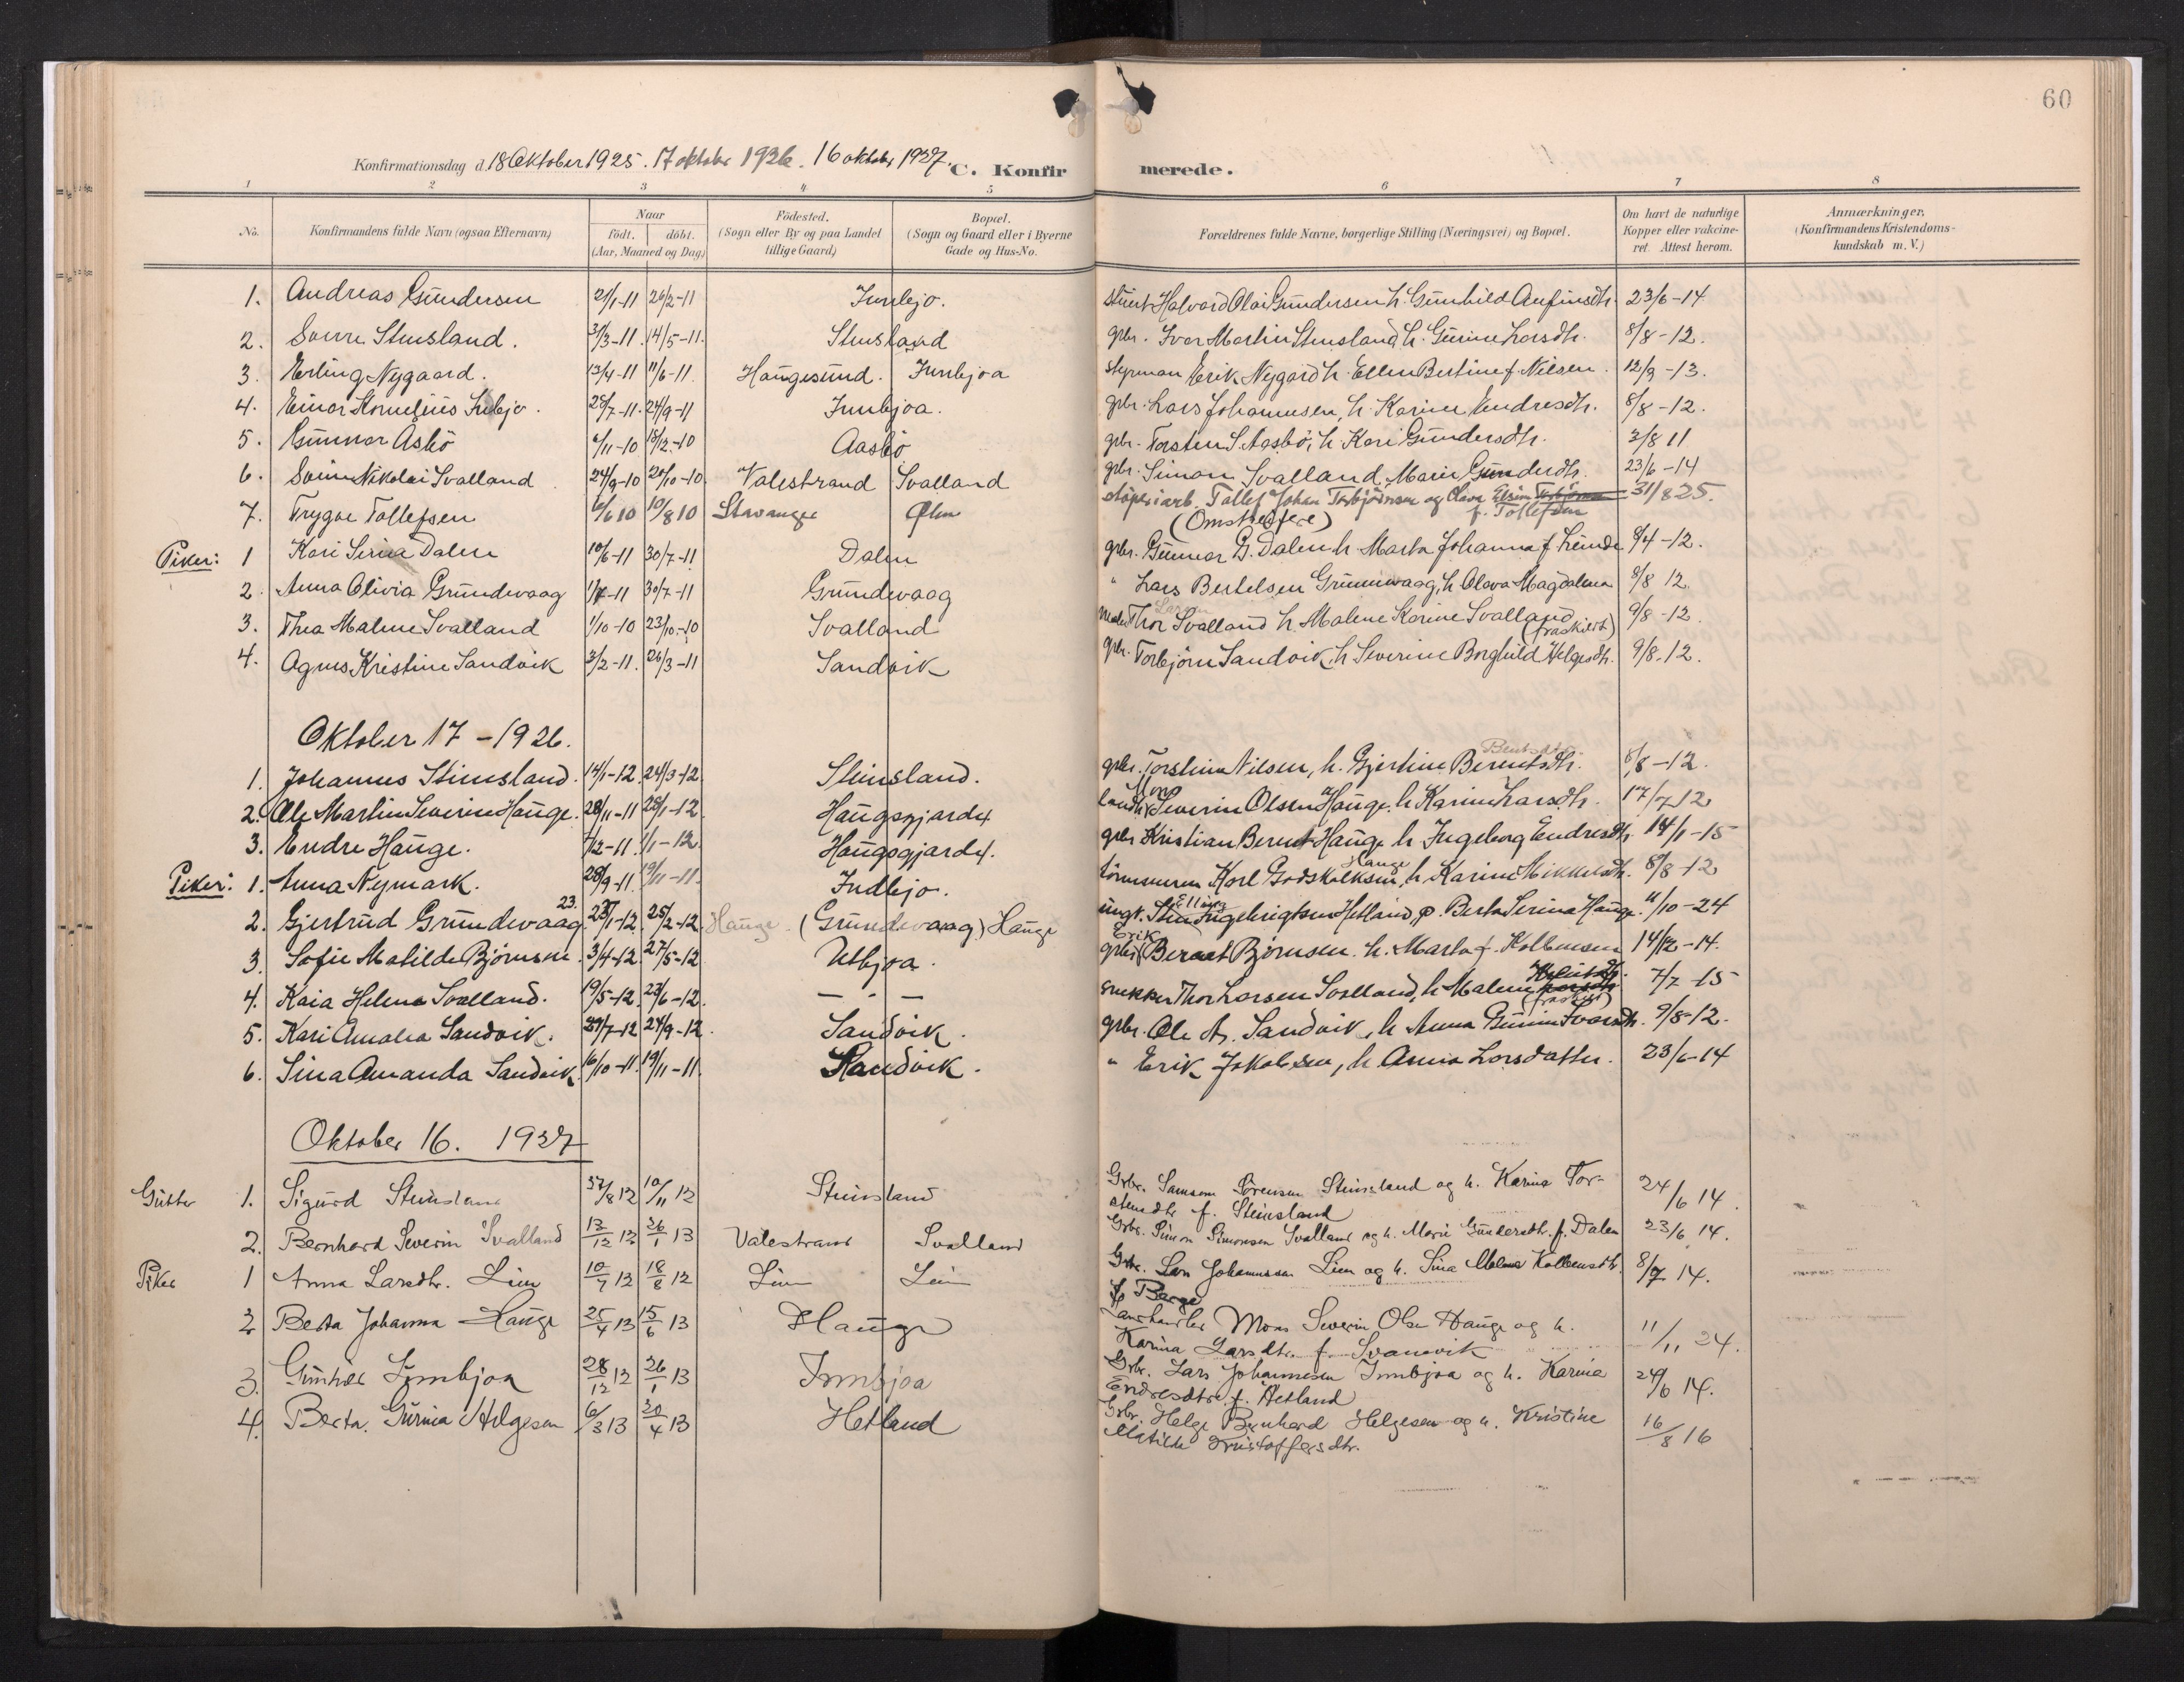 60
Konfirmationsdag d. 18 Oktober 1925. 17 oktober 1926. 16 oktober 1927. C. Konfirmerede.
1 2 3 4 5 6 7 8
No. Konfirmandens fulde Navn (ogsaa Efternavn) Naar födt. döbt. (Aar, Maaned og Dag) Födested. (Sogn eller By og paa Landet tillige Gaard) Bopæl. (Sogn og Gaard eller i Byerne Gade og Hus-No. Forældrenes fulde Navne, borgerlige Stilling (Næringsvei) og Bopæl. Om havt de naturlige Kopper eller vakcineret. Attest herom. Anmærkninger, (Konfirmandens Kristendomskundskab m. V.)
1. Andreas Gundersen 21/1-11 26/2-11 Innbjo. Halvard Olai Gundersen h. Gunhild Anfinsdtr. 23/6-14
2. Sverre Stensland. 31/3-11. 14/5-11. Stensland gbr. Ivar Martin Stensland h. Gurine Larsdtr. 8/8-12.
3. Erling Nygaard. 13/4-11 11/6-11. Haugesund. Innbjoa styrman Erik Nygard h. Ellen Bertine f. Nilsen. 12/9-13.
4. Einar Kornelius Inbjo. 28/7-11. 24/9-11 Innbjoa. gbr. Lars Johannesen, h. Karine Endresdtr. 8/8-12.
5. Gunnar Asbö 6/11-10 18/12-10 Aasbö gbr. Torsten S. Aasbö, h. Kari Gundersdtr. 2/8 11
6. Svein Nikolai Svalland 24/9-10 20/10-10 Valestrand Svalland gbr. Simon Svalland, Marie Gunderdtr. 23/6-14
7. Trygve Tollefsen 6/6 10 10/8 10 Stavanger Ølen støperiarb. Tollef Johan Torbjörnsen og Olava Elisin f. Tollefsen 31/8 25.
(Omstreifere)
Piker: 1 Kari Serina Dalen 10/6-11 30/7-11 Dalen gbr. Gunnar G. Dalen h. Marta Johanna f. Lunde 9/4-12.
2. Anna Olivia Grundevaag 1/7-11 30/7-11 Grundevaag " Lars Bertelsen Grunnevaag, h. Olava Magdalena 8/8 12
3. Thea Malene Svalland 1/10-10 23/10-10 Svalland Thor Larsen Svalland h. Malene Karine Svalland (fraskilt) 9/8-12.
4. Agnes Kristine Sandvik 3/2-11. 26/3-11 Sandvik gbr. Torbjörn Sandvik, h. Severine Borghild Helgesdtr. 9/8-12.
Oktober 17 - 1926.
1. Johannes Stensland. 14/1-12. 24/3-12 Steinsland. gbr. Torstein Nilsen, h. Gjertine Berentsdtr. 8/8-12.
2. Ole Martin Severin Hauge. 28/11-11 28/1-12 Haugsgjardet landh. Mons Severin Olsen Hauge, h. Karine Larsdtr. 17/7 12
3. Endre Hauge. 7/12-11. 1/1-12. Haugsgjardet. gbr. Kristian Bernt Hauge h. Ingeborg Endresdtr. 14/1-15
Piker: 1. Anna Nymark. 28/9-11. 19/11-11. Indbjo. Karl Godskalksen Hauge, h. Karine Mikkelsdtr. 8/8-12
2. Gjertrud Grundevaag. 23. 23/1-12. 25/2-12. Hauge - (Grundevaag) Hauge ungk. Sten Elling Ingebrigtsen Hetland, p. Berta Serina Hauge. 11/10-24
3. Sofie Matilde Björnsen. 3/4-12. 27/5-12 Utbjoa. gbr. Erik Berent Björnsen. h. Marta f. Kolbensen 14/12-14.
4. Kaia Helene Svalland. 19/5-12. 23/6-12. — " — snekker Thor Larsen Svalland, h. Malene Knutsdtr. (fraskilt) 7/7-15
5. Kari Amalia Sandvik. 29/7-12 24/9-12. Sandvik. gbr. Ole A. Sandvik, h. Anna Gurine Ivarsdtr. 9/8-12.
6. Sina Amanda Sandvik. 16/10-11. 19/11-11. Sandvik. " Erik Jakobsen, h. Anna Larsdatter. 23/6-14
Oktober 16. 1927
Gutter 1. Sigurd Steinsland 27/8 12 10/11 12 Steinsland Grbr. Samson Sörensen Steinsland og h. Karina Torsteinsdtr. f. Steinsland 24/6 14.
2. Bernhard Severin Svalland 13/12 12 26/1 13 Valestrand Svalland Grbr. Simon Simonsen Svalland og h. Marie Gundersdtr. f. Dalen 23/6 14.
Piker 1 Anna Larsdtr. Lien 10/7 12 18/8 12 Lien Lien Grbr. Lars Johannessen Lien og h. Sina Malene Kolbensdtr. f. Berge 8/7 14.
2 Berta Johanna Hauge 25/4 13 15/6 13 Hauge Landhandler Mons Severin Olsen Hauge og h. Karina Larsdtr. f. Svanevik 11/11 24.
3. Gunhild Innbjoa 28/12 12 26/1 13 Innbjoa Grbr. Lars Johannesen Innbjoa og h. Karina Endresdtr. f. Hetland 24/6 14.
4. Berta Gurina Helgesen 6/3 13 20/4 13 Hetland Grbr. Helge Bernhard Helgesen og h. Kristine Matilde Kristoffersdtr. 16/8 16